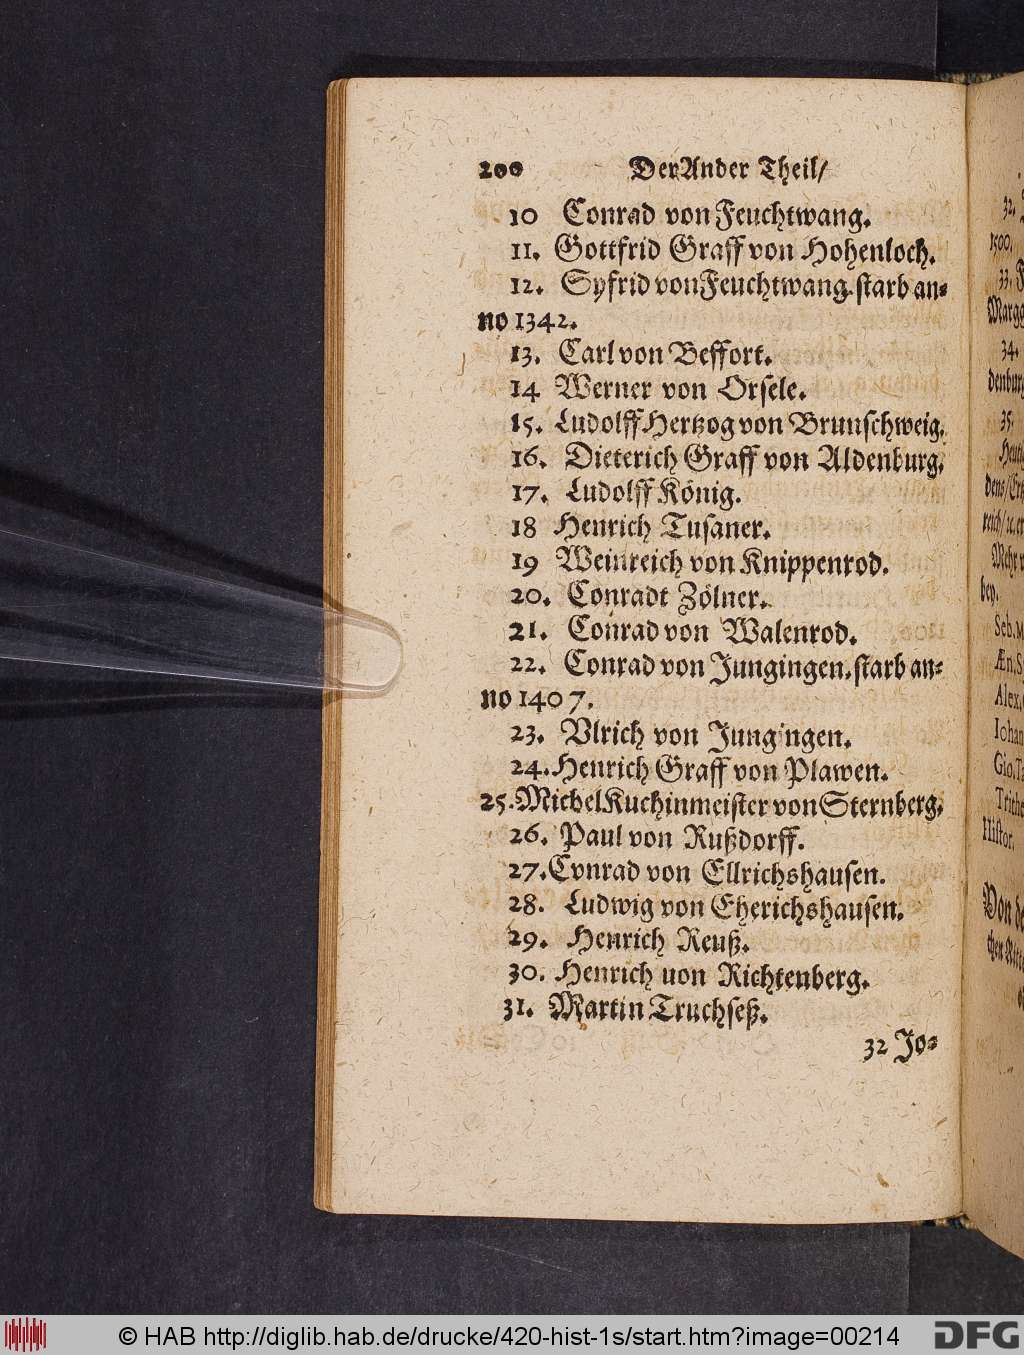 200 Der Ander Theil/
10 Conrad von Feuchtwang.
11. Gottfrid Graff von Hohenloch.
12. Syfrid von Feuchtwang. starb an-
no 1342.
13. Carl von Beffort.
14 Werner von Orsele.
15. Ludolff Hertzog von Brunschweig.
16. Dieterich Graff von Aldenburg.
17. Ludolff König.
18 Henrich Tusaner.
19 Weinreich von Knippenrod.
20. Conradt Zölner.
21. Conrad von Walenrod.
22. Conrad von Jungingen. starb an-
no 1407.
23. Vlrich von Jungingen.
24. Henrich Graff von Plawen.
25. Michel Kuchinmeister von Sternberg.
26. Paul von Rußdorff.
27. Conrad von Ellrichshausen.
28. Ludwig von Eherichshausen.
29. Henrich Reuß.
30. Henrich uon Richtenberg.
31. Martin Truchseß.
32 Jo-
32.
1500.
33. F
Margg
34.
denburg
35.
dens/Ertz
reich/ ꝛc. er
Mehr v
bey.
Seb. M
Æn. Sy
Alex.
Iohan
Gio. T
Trithe
Histor.
Von de
© HAB http://diglib.hab.de/drucke/420-hist-1s/start.htm?image=00214
DFG